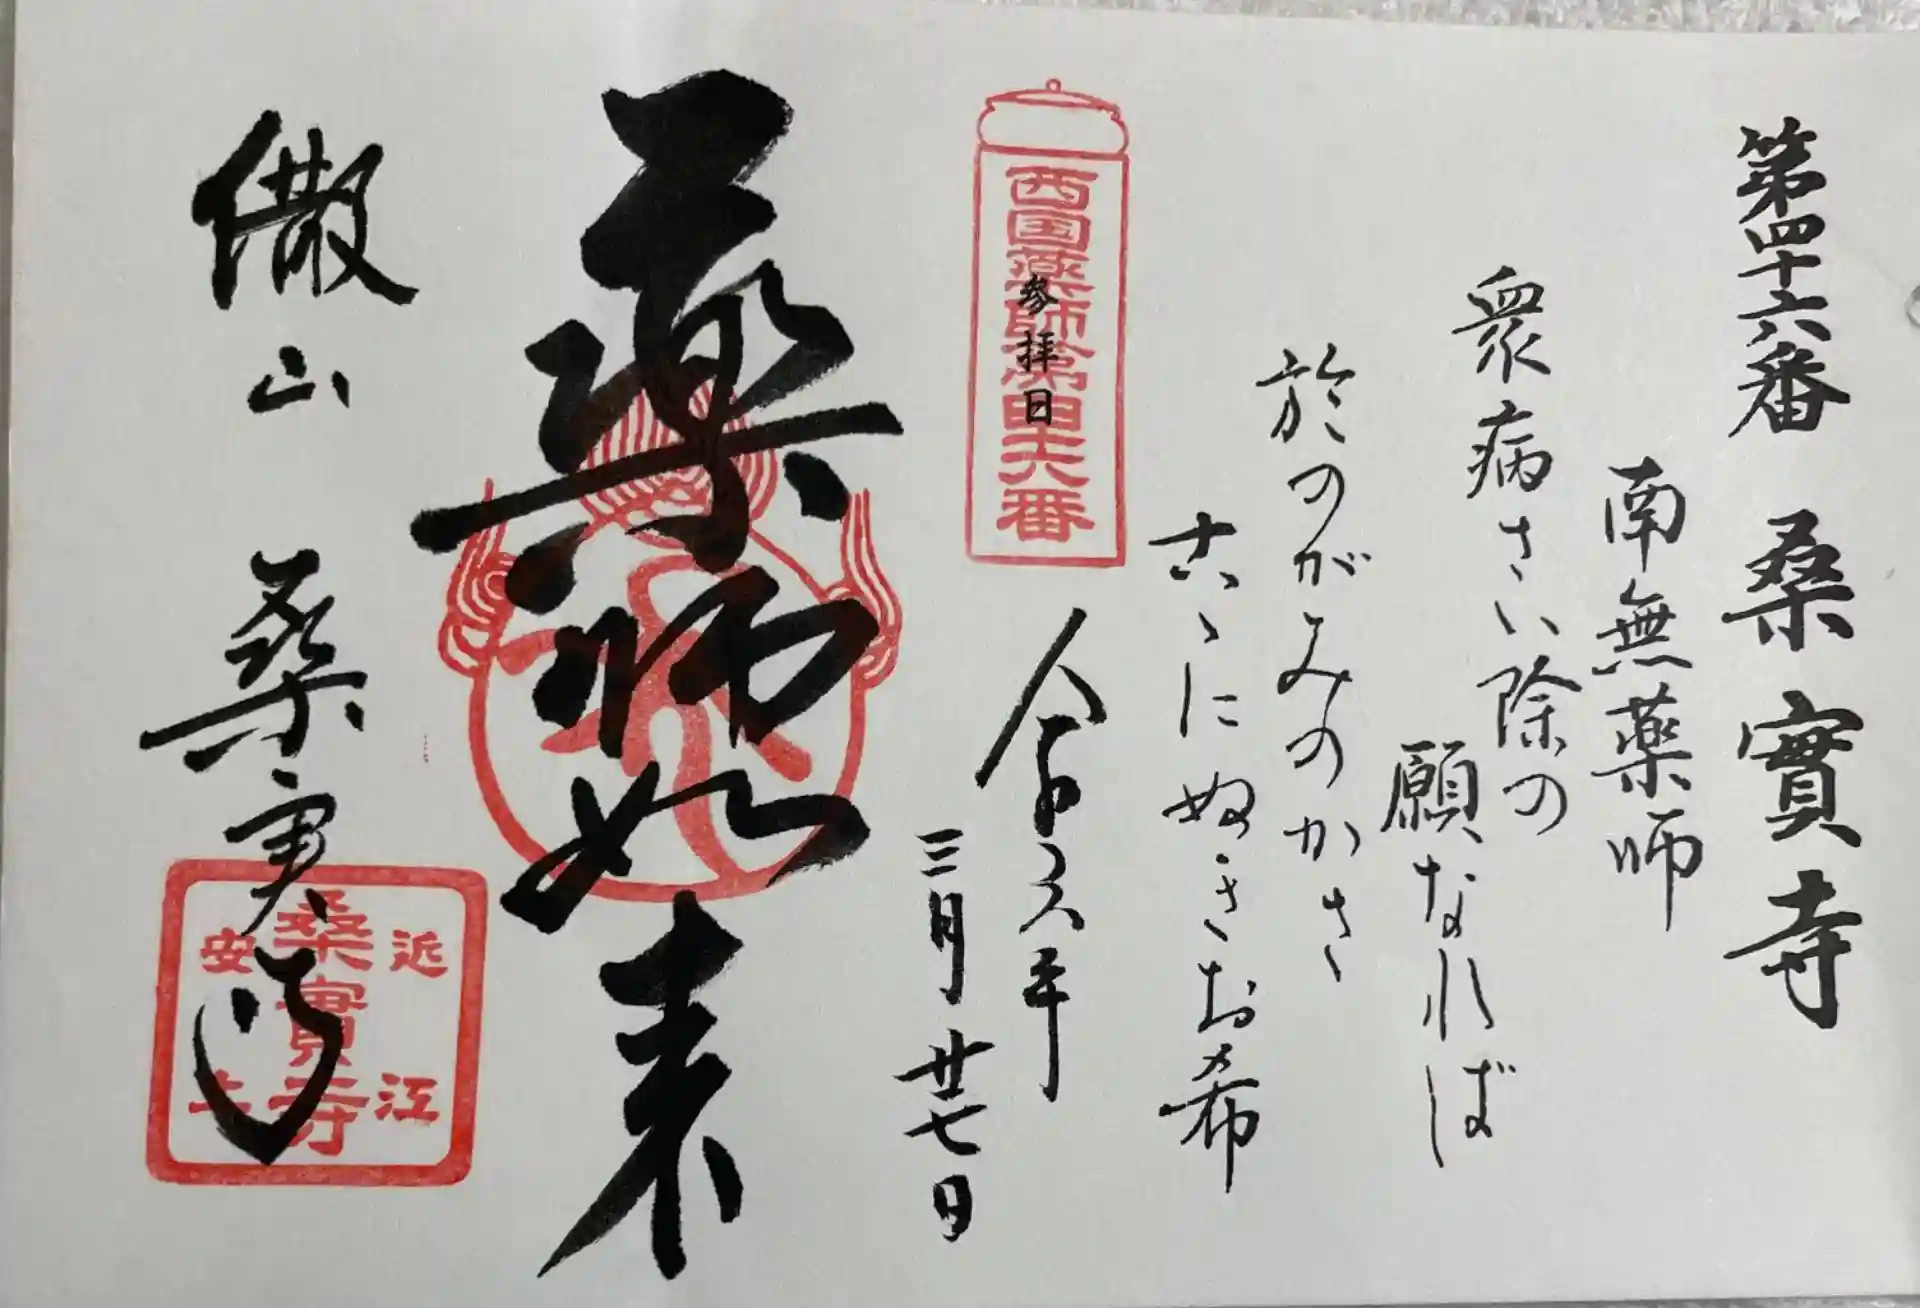 第四十六番 桑實寺
南無薬師
衆病さい除の
願なれば
於のがみのかさ
古ゝにぬきお希
西国薬師第四十六番
参拝日
令和六年
三月廿七日
薬師如来
繖山 桑実寺
近江
桑實寺
安土